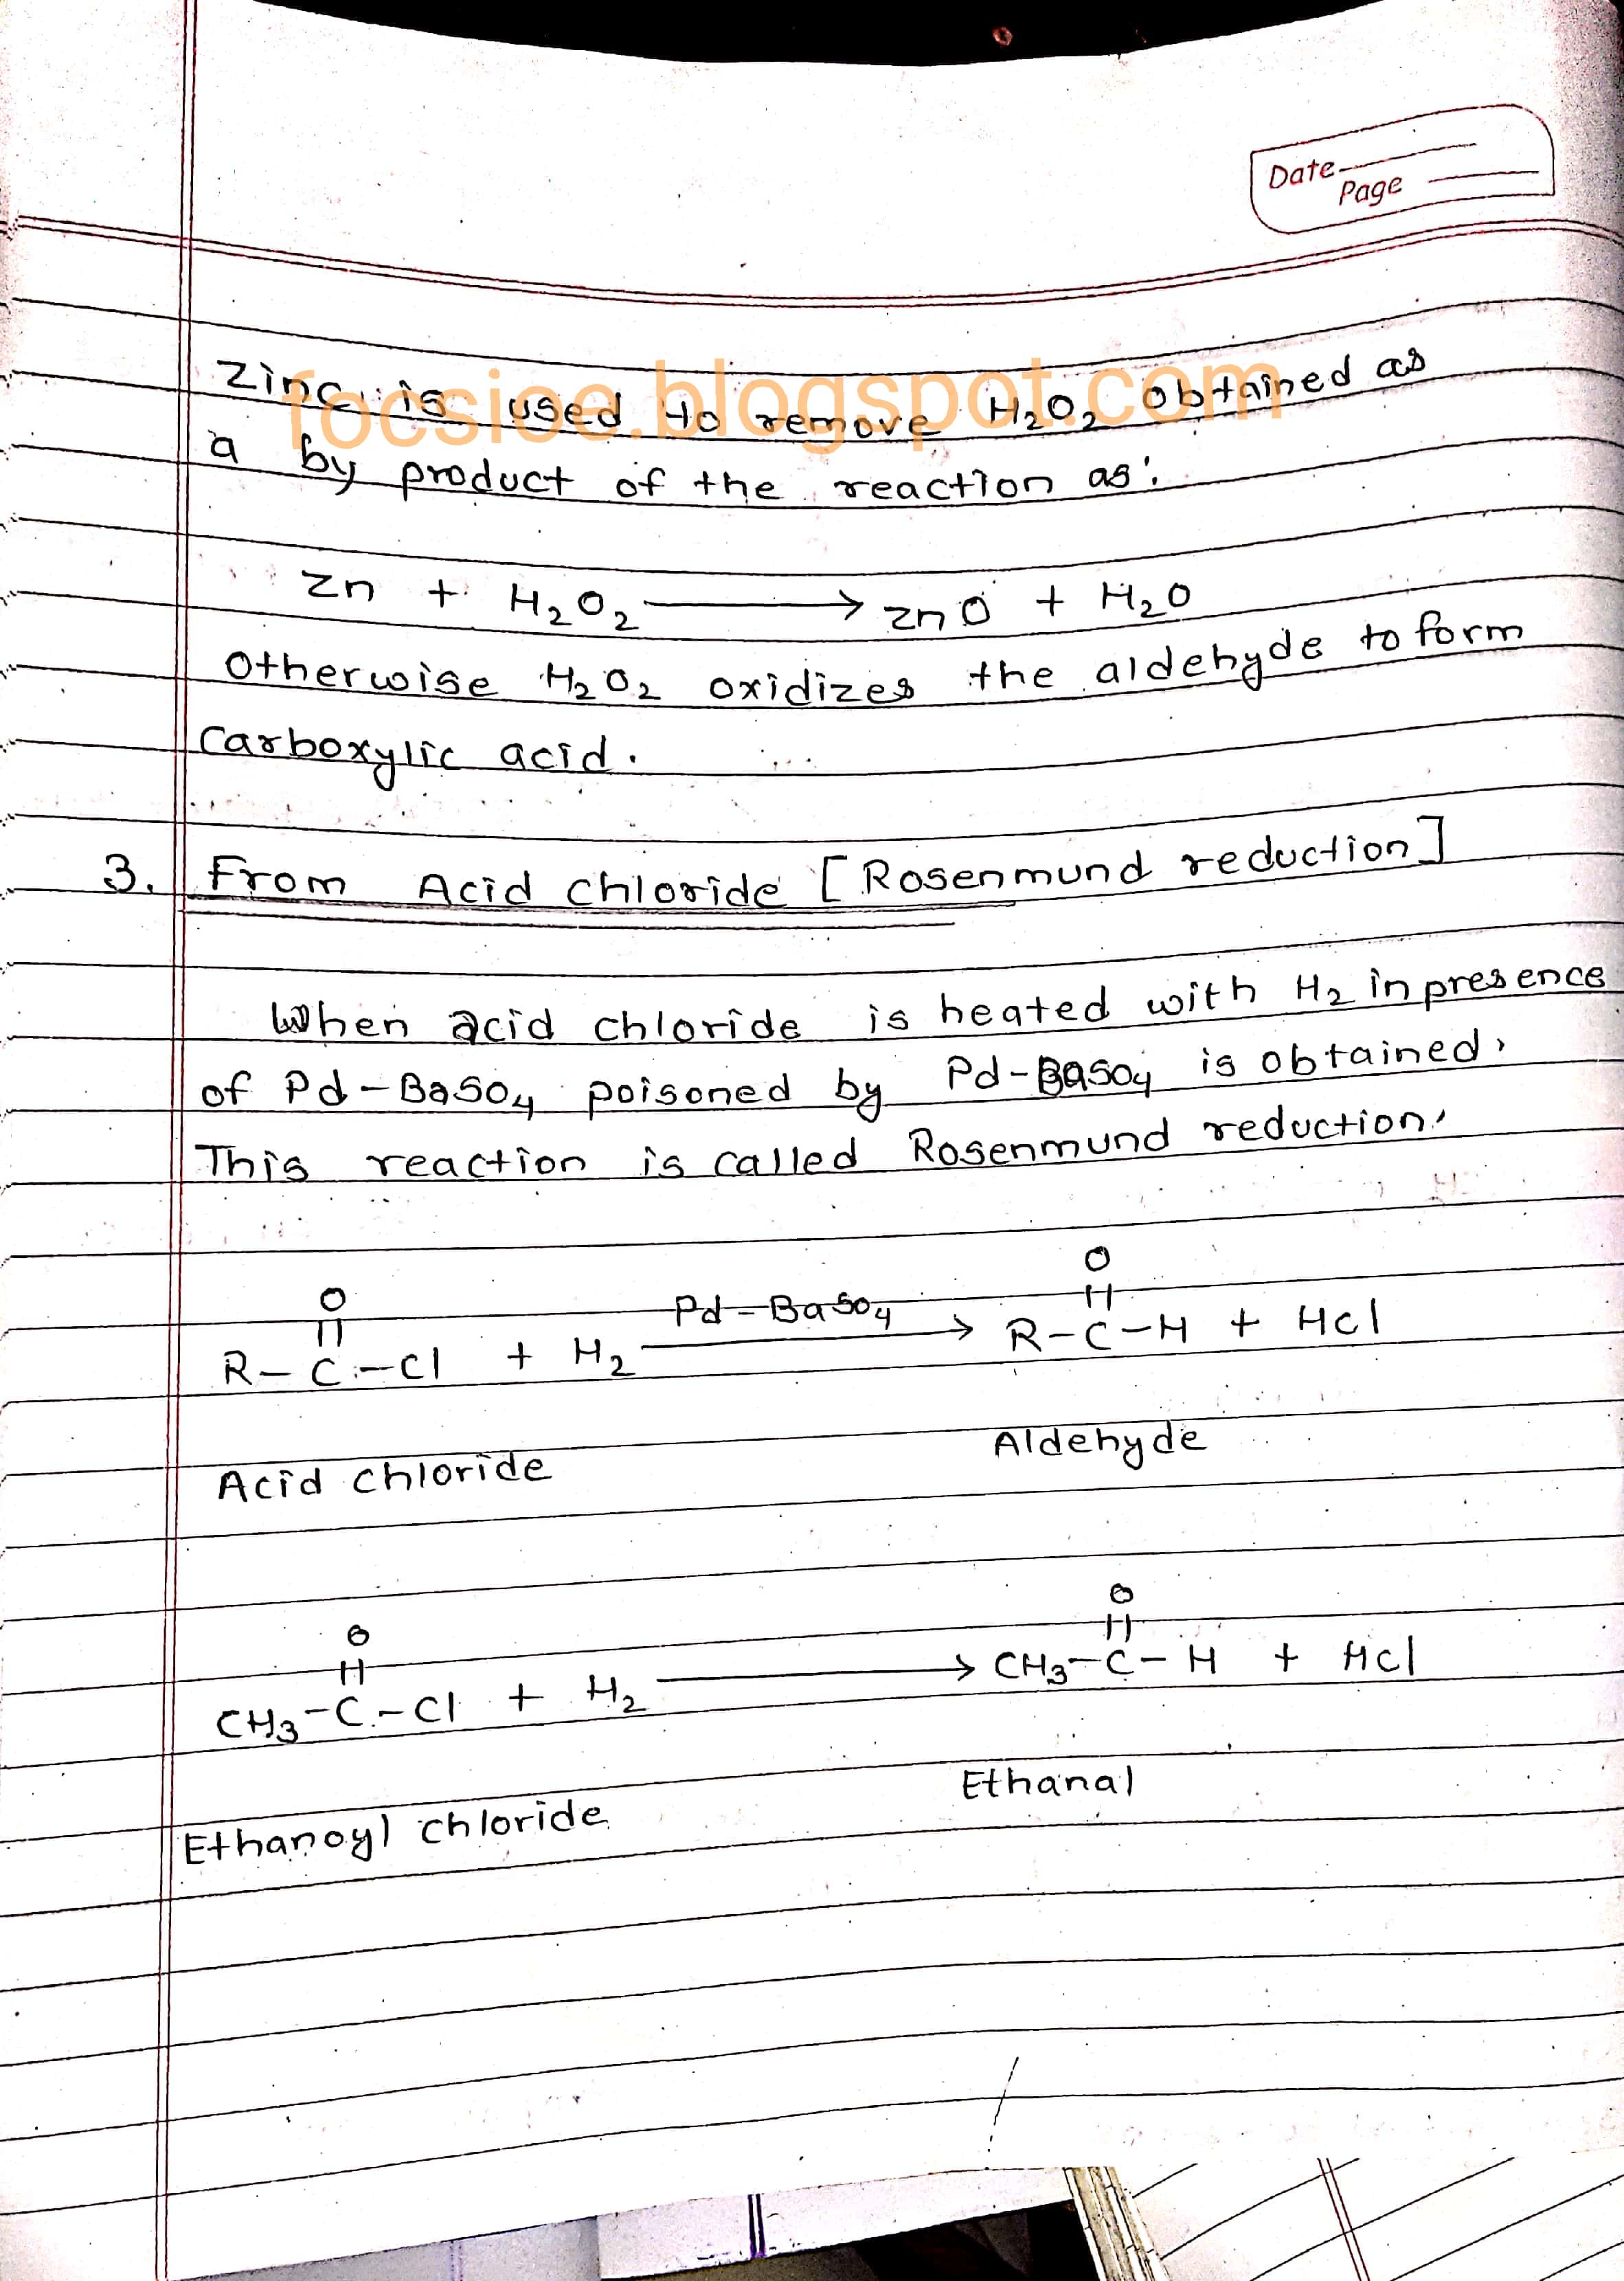 Date
Page
focsioe.blogspot.com
Zinc is used to remove H₂O₂ obtained as
a by product of the reaction as:
Zn + H₂O₂ → ZnO + H₂O
Otherwise H₂O₂ oxidizes the aldehyde to form
Carboxylic acid.
3. From Acid chloride [Rosenmund reduction]
When acid chloride is heated with H₂ in presence
of Pd-BaSO₄ poisoned by Pd-BaSO₄ is obtained,
This reaction is called Rosenmund reduction.
O O
|| Pd-BaSO₄ ||
R-C-Cl + H₂ → R-C-H + HCl
Acid chloride Aldehyde
O O
|| ||
CH₃-C-Cl + H₂ → CH₃-C-H + HCl
Ethanoyl chloride Ethanal